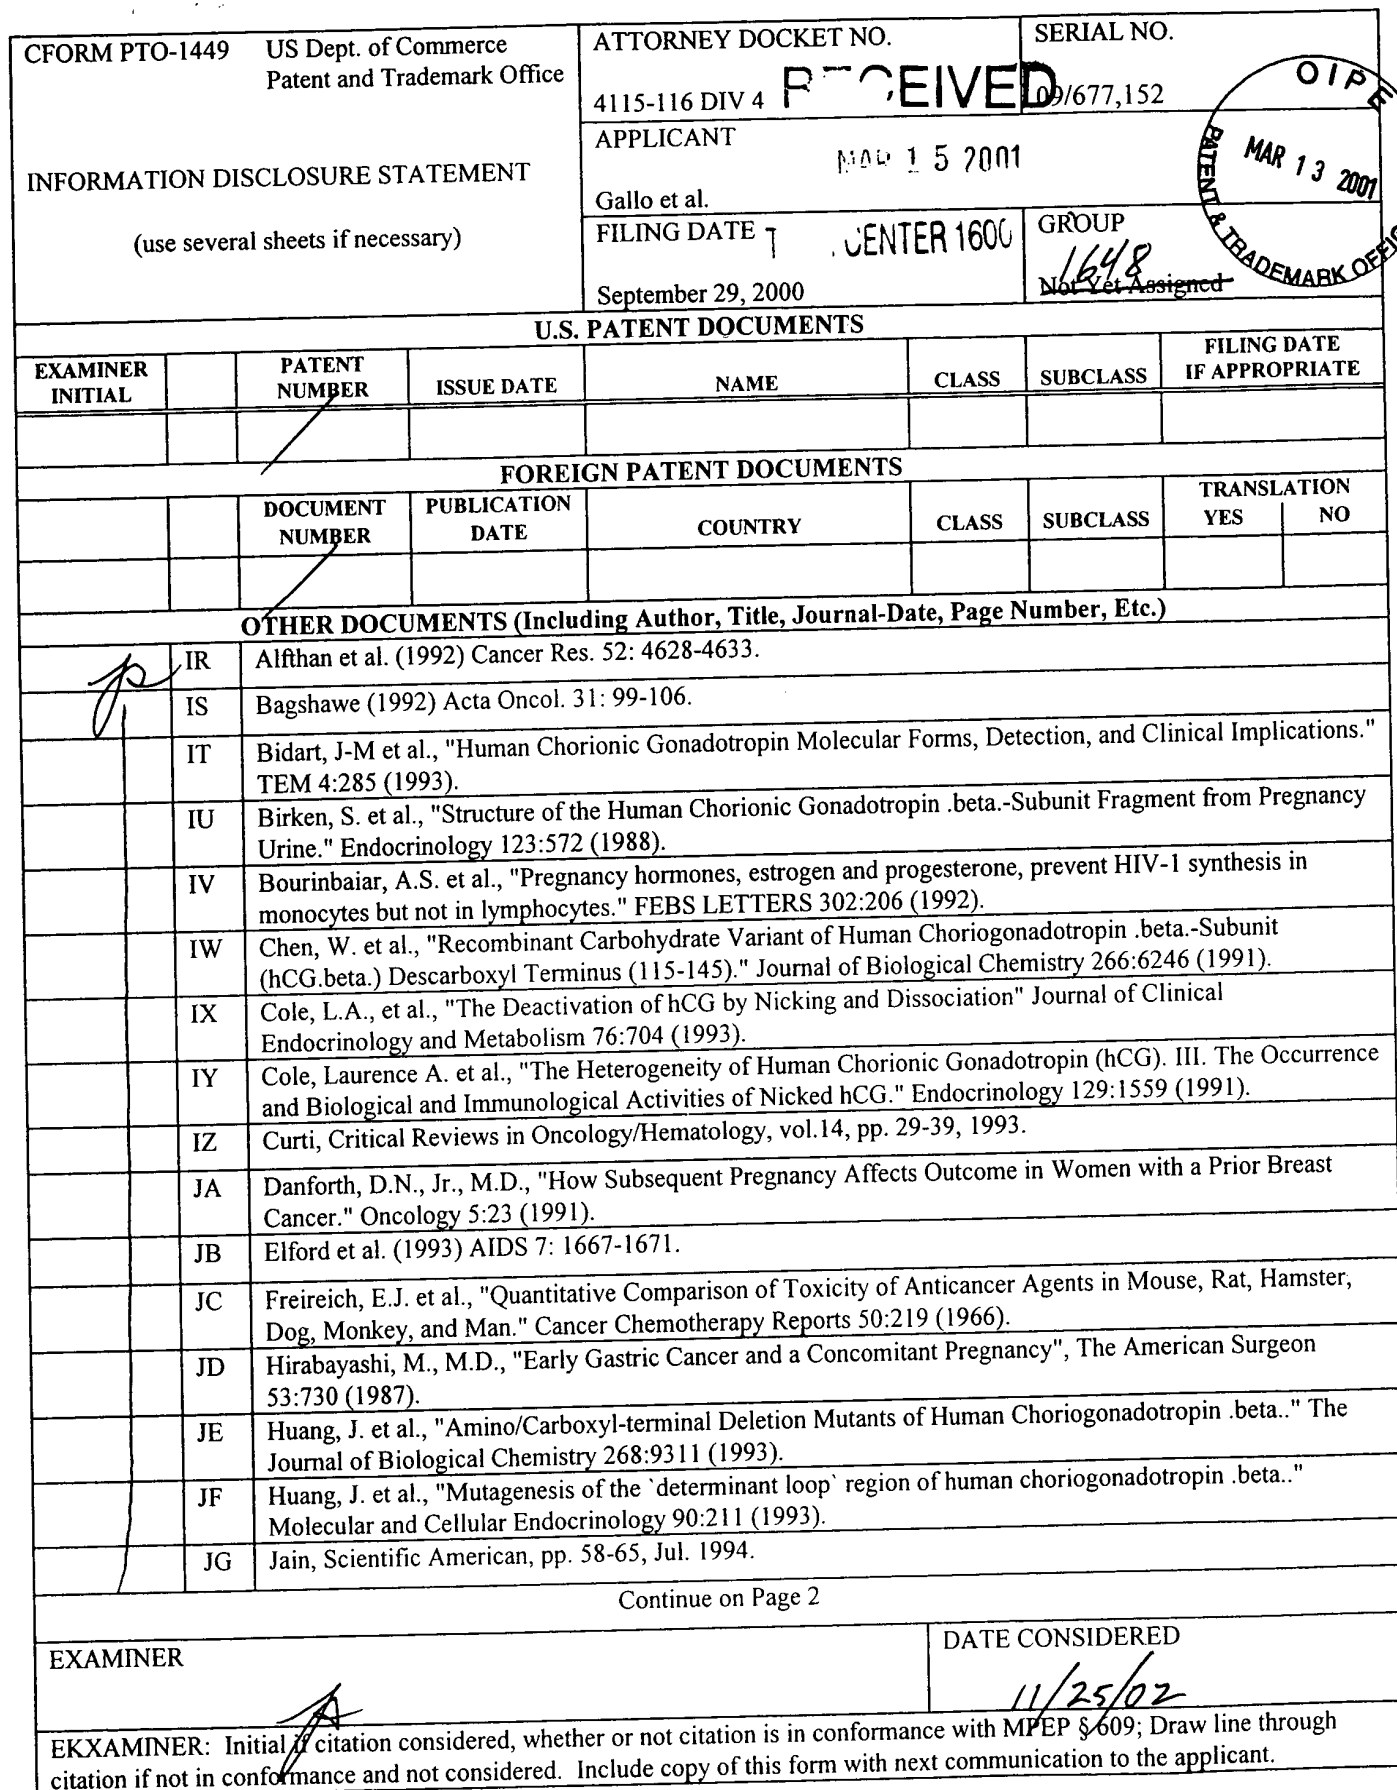 CFORM PTO-1449 US Dept. of Commerce
Patent and Trademark Office
INFORMATION DISCLOSURE STATEMENT
(use several sheets if necessary)
ATTORNEY DOCKET NO.
4115-116 DIV 4
SERIAL NO.
09/677,152
APPLICANT
Gallo et al.
MAR 15 2001
FILING DATE
CENTER 1600
September 29, 2000
GROUP
1648
Not Yet Assigned
OIPE
MAR 13 2001
PATENT & TRADEMARK OFFIC
U.S. PATENT DOCUMENTS
EXAMINER INITIAL PATENT NUMBER ISSUE DATE NAME CLASS SUBCLASS FILING DATE IF APPROPRIATE
FOREIGN PATENT DOCUMENTS
DOCUMENT NUMBER PUBLICATION DATE COUNTRY CLASS SUBCLASS TRANSLATION YES NO
OTHER DOCUMENTS (Including Author, Title, Journal-Date, Page Number, Etc.)
IR Alfthan et al. (1992) Cancer Res. 52: 4628-4633.
IS Bagshawe (1992) Acta Oncol. 31: 99-106.
IT Bidart, J-M et al., "Human Chorionic Gonadotropin Molecular Forms, Detection, and Clinical Implications."
TEM 4:285 (1993).
IU Birken, S. et al., "Structure of the Human Chorionic Gonadotropin .beta.-Subunit Fragment from Pregnancy
Urine." Endocrinology 123:572 (1988).
IV Bourinbaiar, A.S. et al., "Pregnancy hormones, estrogen and progesterone, prevent HIV-1 synthesis in
monocytes but not in lymphocytes." FEBS LETTERS 302:206 (1992).
IW Chen, W. et al., "Recombinant Carbohydrate Variant of Human Choriogonadotropin .beta.-Subunit
(hCG.beta.) Descarboxyl Terminus (115-145)." Journal of Biological Chemistry 266:6246 (1991).
IX Cole, L.A., et al., "The Deactivation of hCG by Nicking and Dissociation" Journal of Clinical
Endocrinology and Metabolism 76:704 (1993).
IY Cole, Laurence A. et al., "The Heterogeneity of Human Chorionic Gonadotropin (hCG). III. The Occurrence
and Biological and Immunological Activities of Nicked hCG." Endocrinology 129:1559 (1991).
IZ Curti, Critical Reviews in Oncology/Hematology, vol.14, pp. 29-39, 1993.
JA Danforth, D.N., Jr., M.D., "How Subsequent Pregnancy Affects Outcome in Women with a Prior Breast
Cancer." Oncology 5:23 (1991).
JB Elford et al. (1993) AIDS 7: 1667-1671.
JC Freireich, E.J. et al., "Quantitative Comparison of Toxicity of Anticancer Agents in Mouse, Rat, Hamster,
Dog, Monkey, and Man." Cancer Chemotherapy Reports 50:219 (1966).
JD Hirabayashi, M., M.D., "Early Gastric Cancer and a Concomitant Pregnancy", The American Surgeon
53:730 (1987).
JE Huang, J. et al., "Amino/Carboxyl-terminal Deletion Mutants of Human Choriogonadotropin .beta.." The
Journal of Biological Chemistry 268:9311 (1993).
JF Huang, J. et al., "Mutagenesis of the `determinant loop` region of human choriogonadotropin .beta.."
Molecular and Cellular Endocrinology 90:211 (1993).
JG Jain, Scientific American, pp. 58-65, Jul. 1994.
Continue on Page 2
EXAMINER
DATE CONSIDERED
11/25/02
EKXAMINER: Initial if citation considered, whether or not citation is in conformance with MPEP § 609; Draw line through
citation if not in conformance and not considered. Include copy of this form with next communication to the applicant.